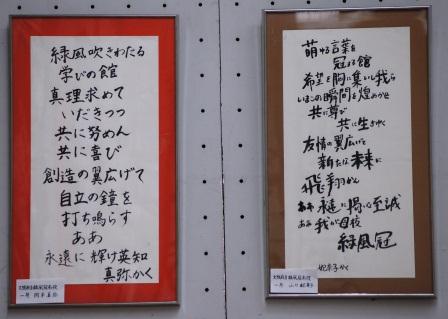 緑風吹きわたる
学びの館
真理求めて
いだきつつ
共に努めん
共に喜び
創造の翼広げて
自立の鐘を
打ち鳴らす
ああ
永遠に輝け英知
真弥かく
萌ゆる言葉を
冠する館
希望を胸に集いし我ら
いまこの瞬間を煌めかせ
共に尊び
共に生きゆく
友情の翼広げて
新たな未来に
飛翔かん
ああ 永遠に掲げん至誠
ああ 我が母校
緑風冠